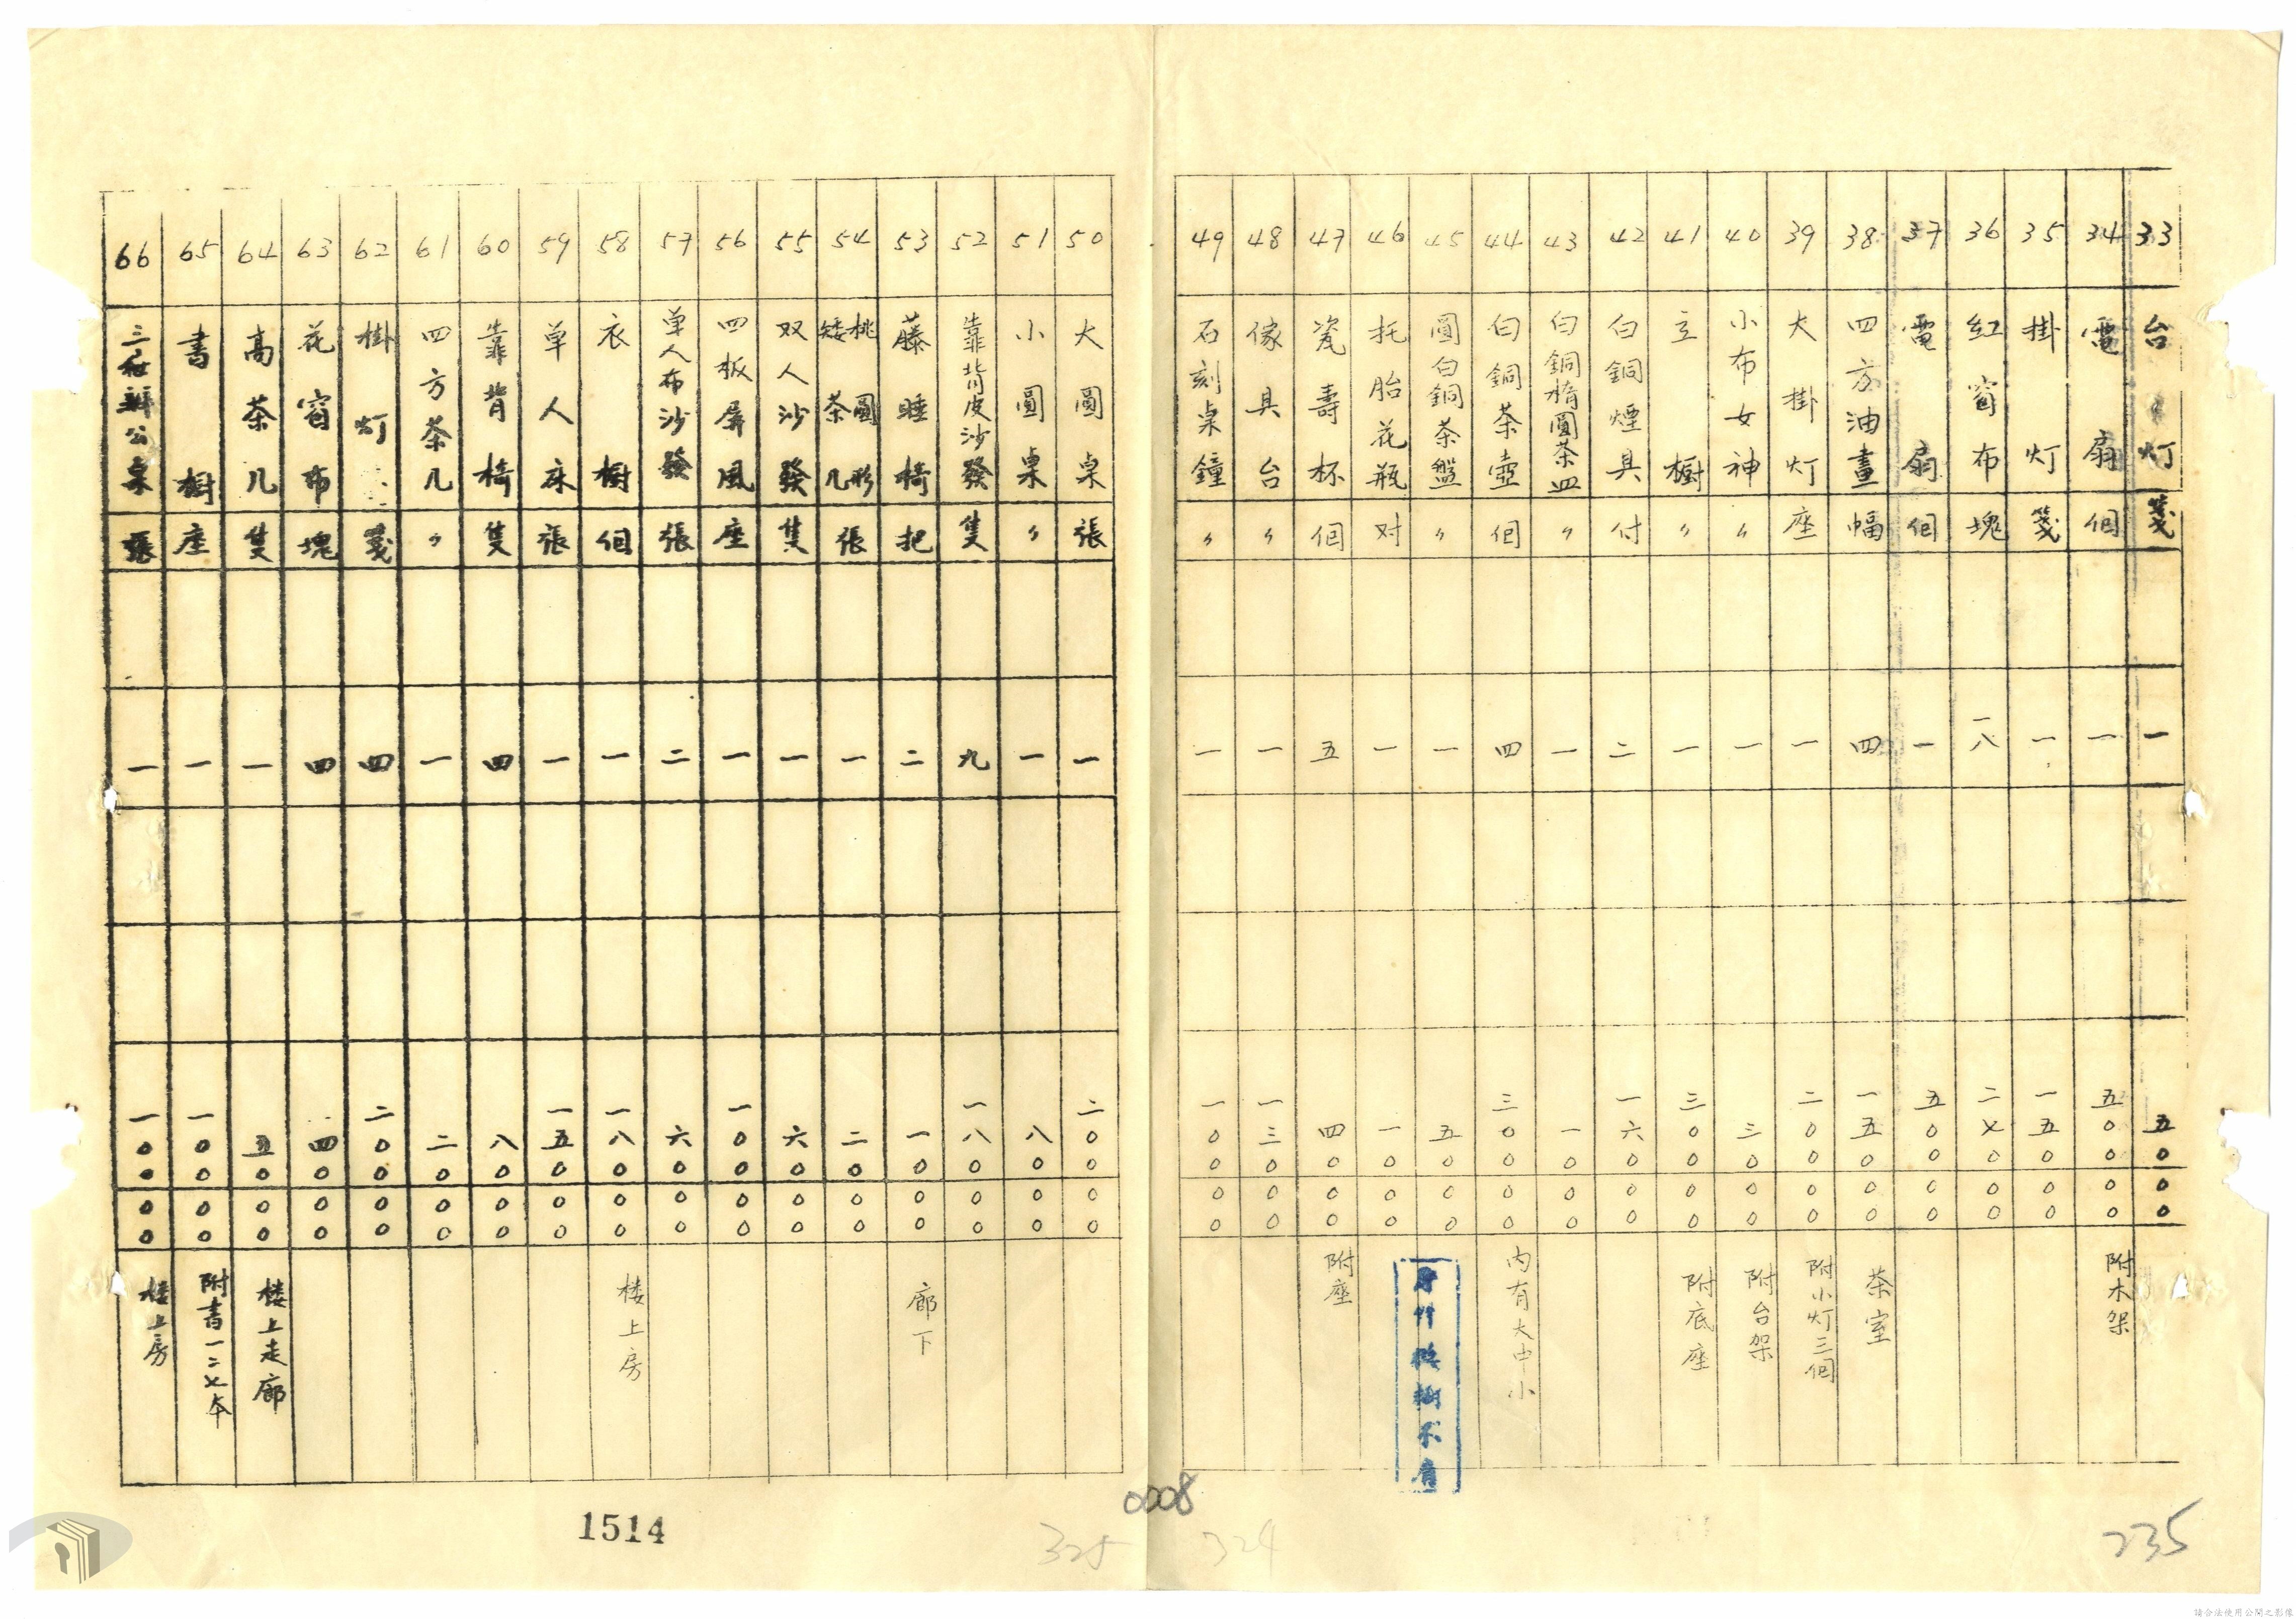 33 台灯 箋 一 五〇〇〇
34 電扇 個 一 五〇〇〇〇 附木架
35 掛灯 箋 一 一五〇〇〇
36 紅窗布 塊 一八 二七〇〇〇
37 電扇 個 一 五〇〇〇〇
38 四方油畫 幅 四 一五〇〇〇 茶室
39 大掛灯 座 一 二〇〇〇〇 附小灯三個
40 小布女神 〃 一 三〇〇〇 附台架
41 立櫥 〃 一 三〇〇〇〇 附底座
42 白銅煙具 付 二 一六〇〇〇
43 白銅橢圓茶皿 〃 一 一〇〇〇
44 白銅茶壺 個 四 三〇〇〇〇 內有大中小
45 圓白銅茶盤 〃 一 五〇〇〇
46 托胎花瓶 对 一 一〇〇〇
47 瓷壽杯 個 五 四〇〇〇 附座
48 傢具台 〃 一 一三〇〇〇
49 石刻桌鐘 〃 一 一〇〇〇〇
50 大圓桌 張 一 二〇〇〇〇
51 小圓桌 〃 一 八〇〇〇
52 靠背皮沙發 隻 九 一八〇〇〇
53 藤睡椅 把 二 一〇〇〇 廊下
54 桃圓形矮茶几 張 一 二〇〇〇
55 双人沙發 隻 一 六〇〇〇
56 四板屏風 座 一 一〇〇〇〇
57 单人布沙發 張 二 六〇〇〇
58 衣櫥 個 一 一八〇〇〇 楼上房
59 单人床 張 一 一五〇〇〇
60 靠背椅 隻 四 八〇〇〇
61 四方茶几 〃 一 二〇〇〇
62 掛灯 箋 四 二〇〇〇〇
63 花窗布 塊 四 四〇〇〇
64 高茶几 隻 一 五〇〇〇 楼上走廊
65 書櫥 座 一 一〇〇〇〇 附書一二七本
66 三秘辦公桌 張 一 一〇〇〇〇 楼上房
1514
0008
325
324
235
請合法使用公開之影像